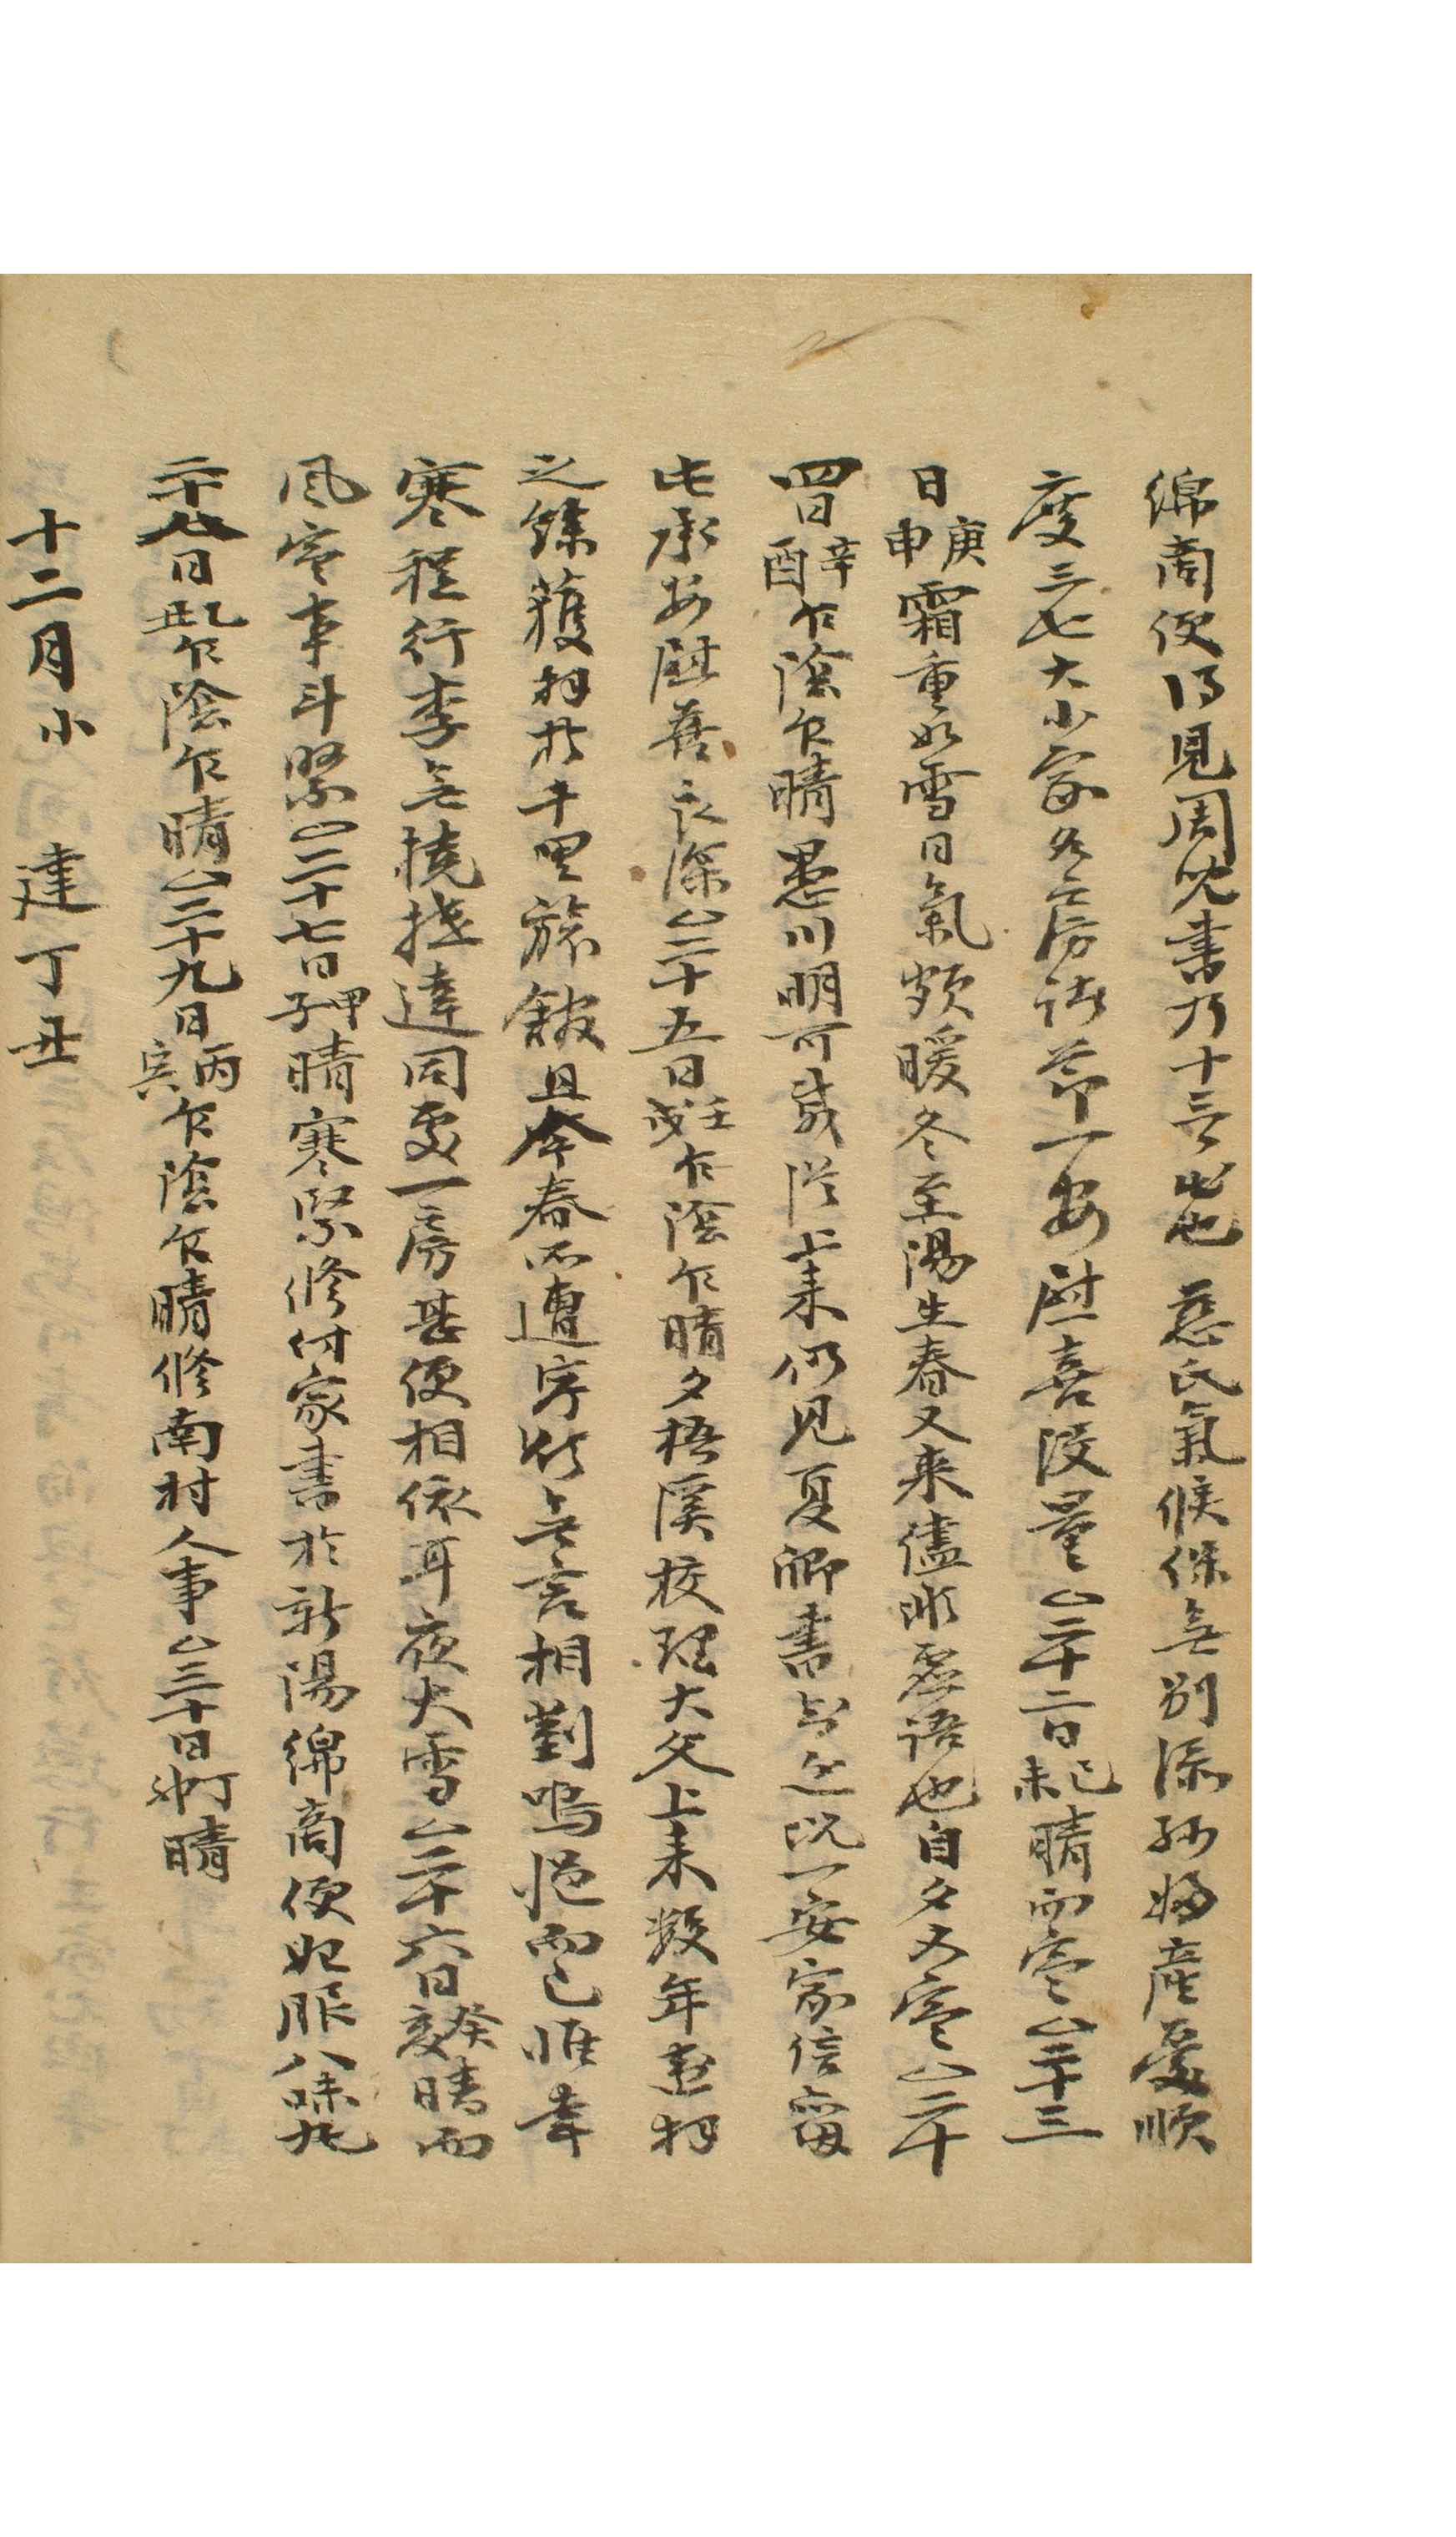 綿商便得見周兒書乃十三日出也 慈氏氣候保無別添孫婦產憂順
度三七大小家各房諸節一安慰喜沒量○二十二日己未晴而寒○二十三
日庚申霜重如雪日氣頗暖冬至陽生春又來儘非虛語也自夕又寒○二十
四日辛酉乍陰乍晴愚川明可戚從上來仍見夏卿書与迷兒一安家信留
此承安慰喜良深○二十五日壬戌乍陰乍晴夕梧溪校理大父上來數年違拜
之餘獲拜於千里旅館且今春所遭字斷無言相對嗚悒而已惟幸
寒程行李無撓撓達同處一房甚便相依耳夜大雪○二十六日癸亥晴而
風寒事斗緊○二十七日甲子晴寒緊修付家書於新陽綿商便始服八味丸
二十八日乙丑乍陰乍晴○二十九日丙寅乍陰乍晴修南村人事○三十日丁卯晴
十二月小 建丁丑